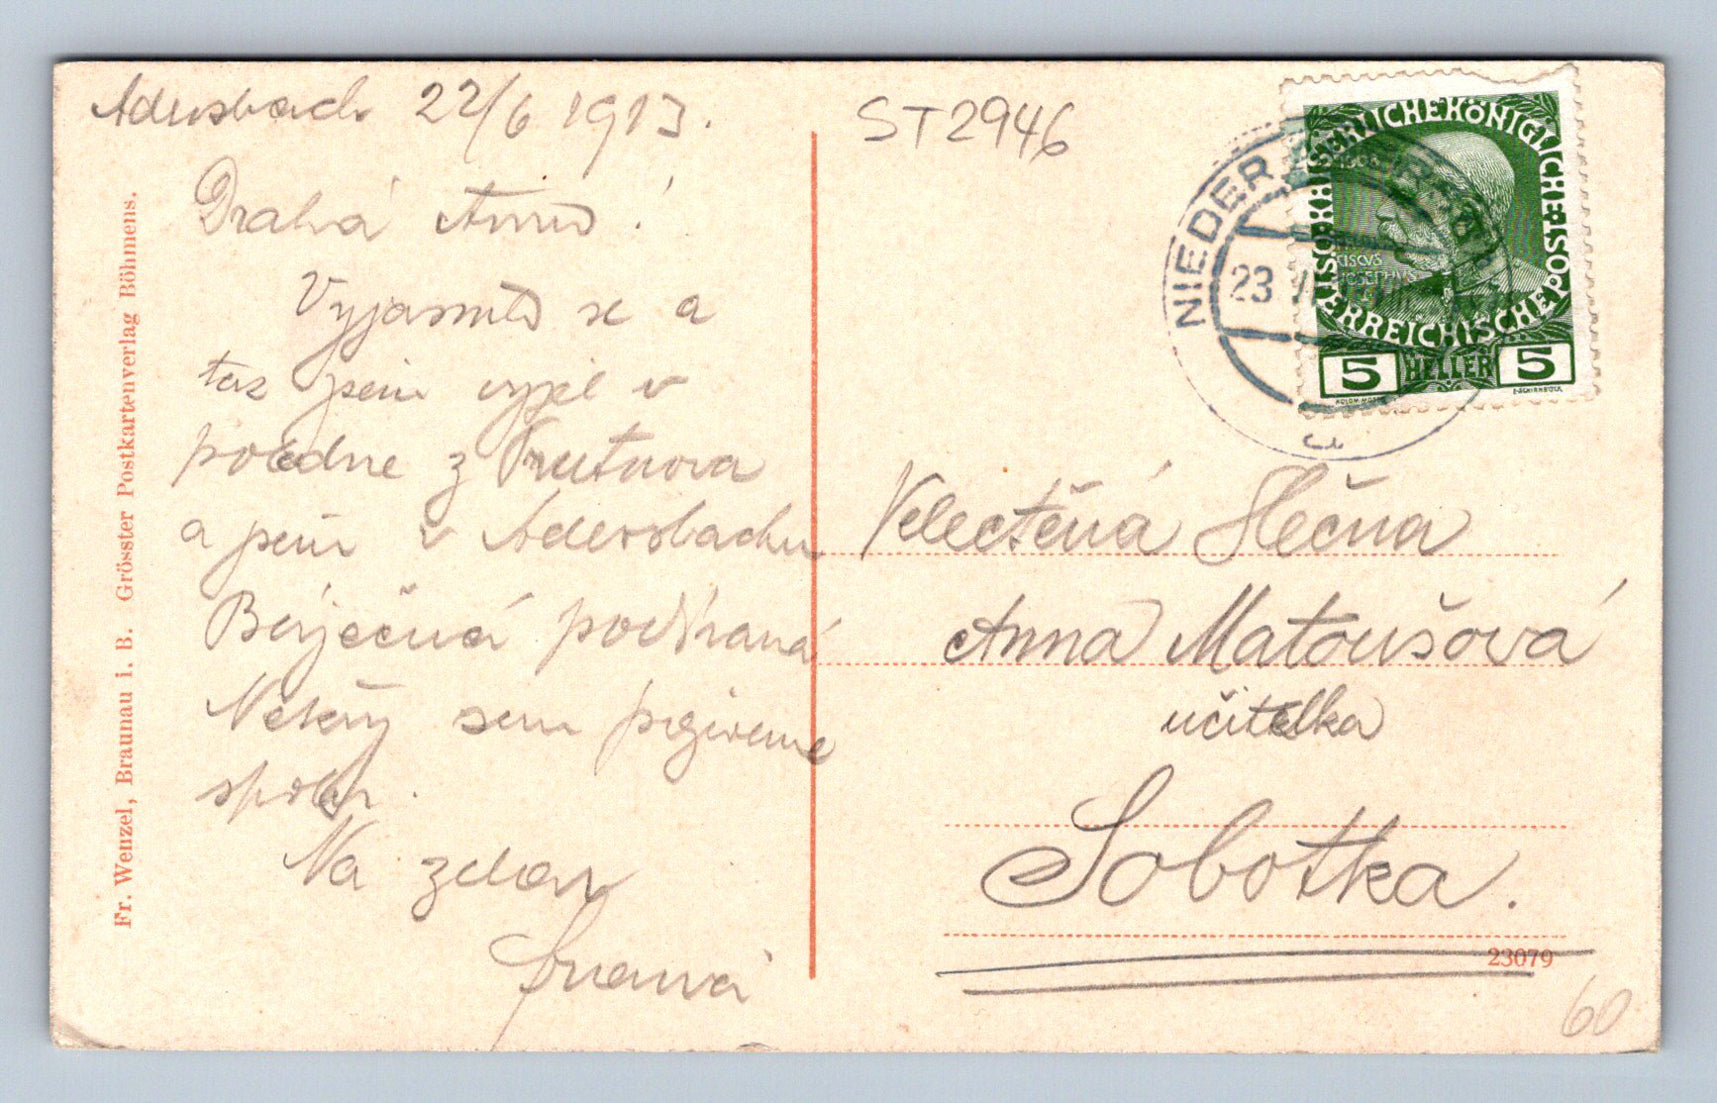 Adersbach 22/6 1913.
Drahá Anno!
Vyjasnilo se a
tak jsem vyjel v
poledne z Trutnova
a jsem v Adersbachu
Báječná podívaná
Někdy sem
spolu.
Na zdar
Fr. Wenzel, Braunau i. B. Grösster Postkartenverlag Böhmens.
ST2946
KAISERLICHE KÖNIGLICHE
ÖSTERREICHISCHE POST
1908
JOSEPHVS
5 HELLER 5
NIEDER
23 VI
Velectěná Slečna
Anna Matoušová
učitelka
Sobotka.
23079
60